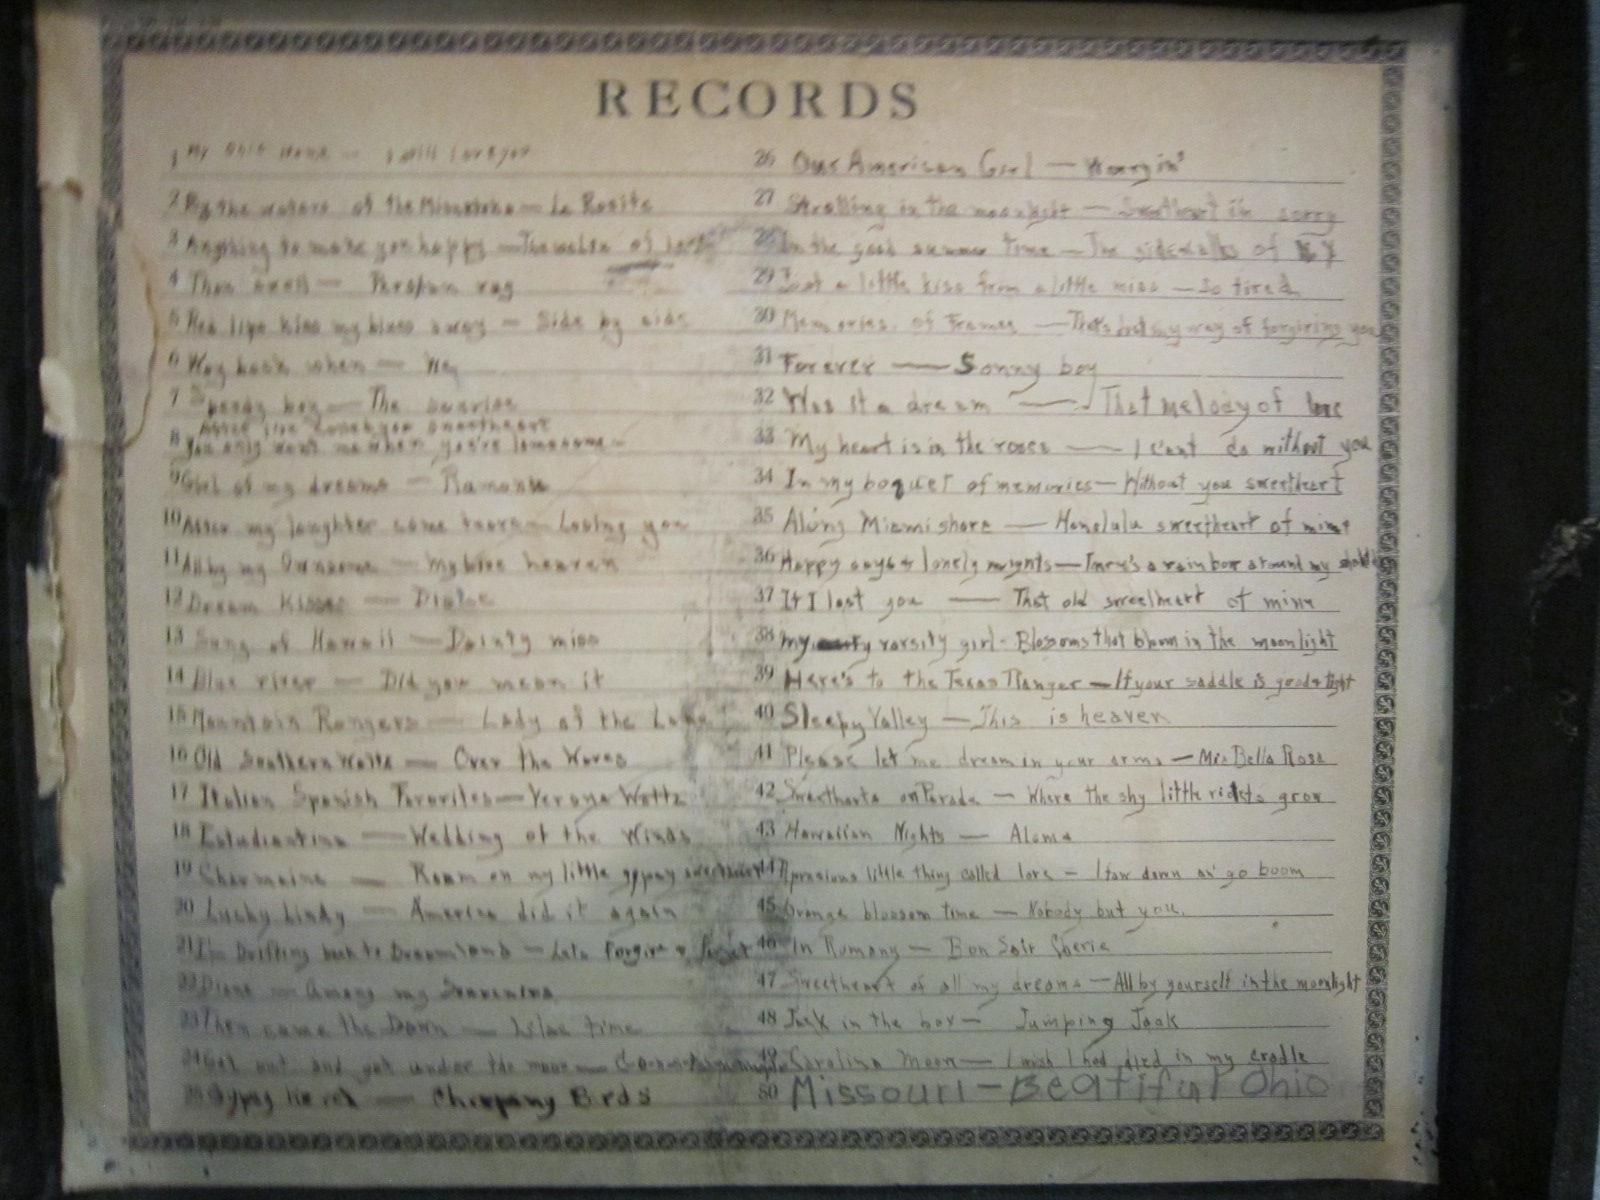 RECORDS
1 My Ohio Home — I still love you
2 By the waters of the Minnetonka — La Rosita
3 Anything to make you happy — The waltz of
4 Thou swell — Persian rag
5 Red lips kiss my blues away — Side by side
6 Way back when —
7 Speedy boy — The sunrise
After I've called you sweetheart
8 You only want me when you're lonesome —
9 Girl of my dreams — Ramona
10 After my laughter came tears — Losing you
11 All by my Ownsome — My blue heaven
12 Dream Kisses —
13 Song of Hawaii — Dainty miss
14 Blue river — Did you mean it
15 Mountain Rangers — Lady of the Lake
16 Old Southern Waltz — Over the Waves
17 Italian Spanish Favorites — Verona Waltz
18 Estudiantina — Wedding of the Winds
19 Charmaine — Roam on my little gypsy sweetheart
20 Lucky Lindy — America did it again
21 I'm Drifting back to Dreamland — Lets forgive & forget
22 Diane — Among my Souvenirs
23 Then came the Dawn — Lilac time
24 Get out and get under the moon —
25 Gypsy — Chirpany Birds
26 Our American Girl — Wearyin'
27 Strolling in the moonlight — Sweetheart im sorry
28 In the good summer time — The sidewalks of NY
29 Just a little kiss from a little miss — So tired
30 Memories of France — That's just my way of forgiving you
31 Forever — Sonny boy
32 Was it a dream — That melody of love
33 My heart is in the roses — I cant do without you
34 In my boquet of memories — Without you sweetheart
35 Along Miami shore — Honolulu sweetheart of mine
36 Happy days & lonely nights — There's a rainbow around my
37 If I lost you — That old sweetheart of mine
38 My varsity girl - Blossoms that bloom in the moonlight
39 Here's to the Texas Ranger — If your saddle is good & tight
40 Sleepy Valley — This is heaven
41 Please let me dream in your arms — Mia Bella Rosa
42 Sweethearts on Parade — Where the shy little violets grow
43 Hawaiian Nights — Aloma
44 A precious little thing called love — I faw down an' go boom
45 Orange blossom time — Nobody but you.
46 In Romany — Bon Soir Cherie
47 Sweetheart of all my dreams — All by yourself in the moonlight
48 Jack in the box — Jumping Jack
49 Carolina Moon — I wish I had died in my cradle
50 Missouri — Beatiful Ohio